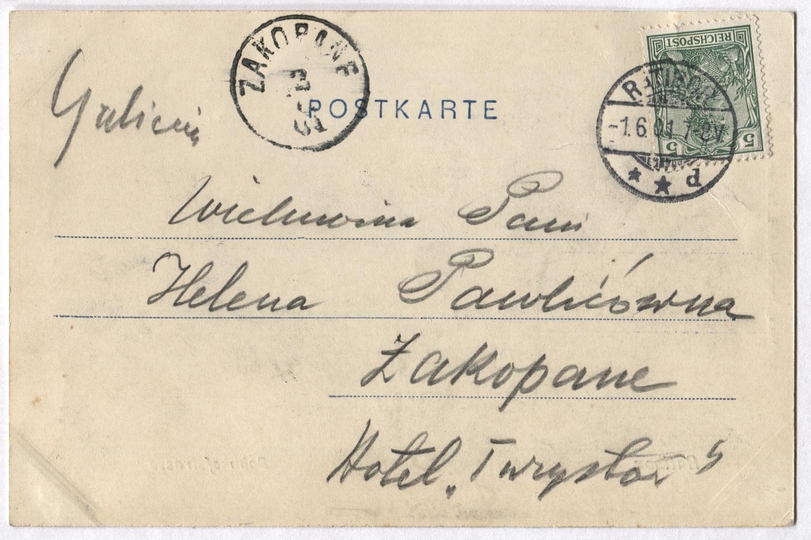 Galicia
ZAKOPANE
POSTKARTE
REICHSPOST
5 5
RATIBOR
-1.6.01.7-8V.
Wielmożna Pani
Helena Pawlicówna
Zakopane
Hotel „Turystów"